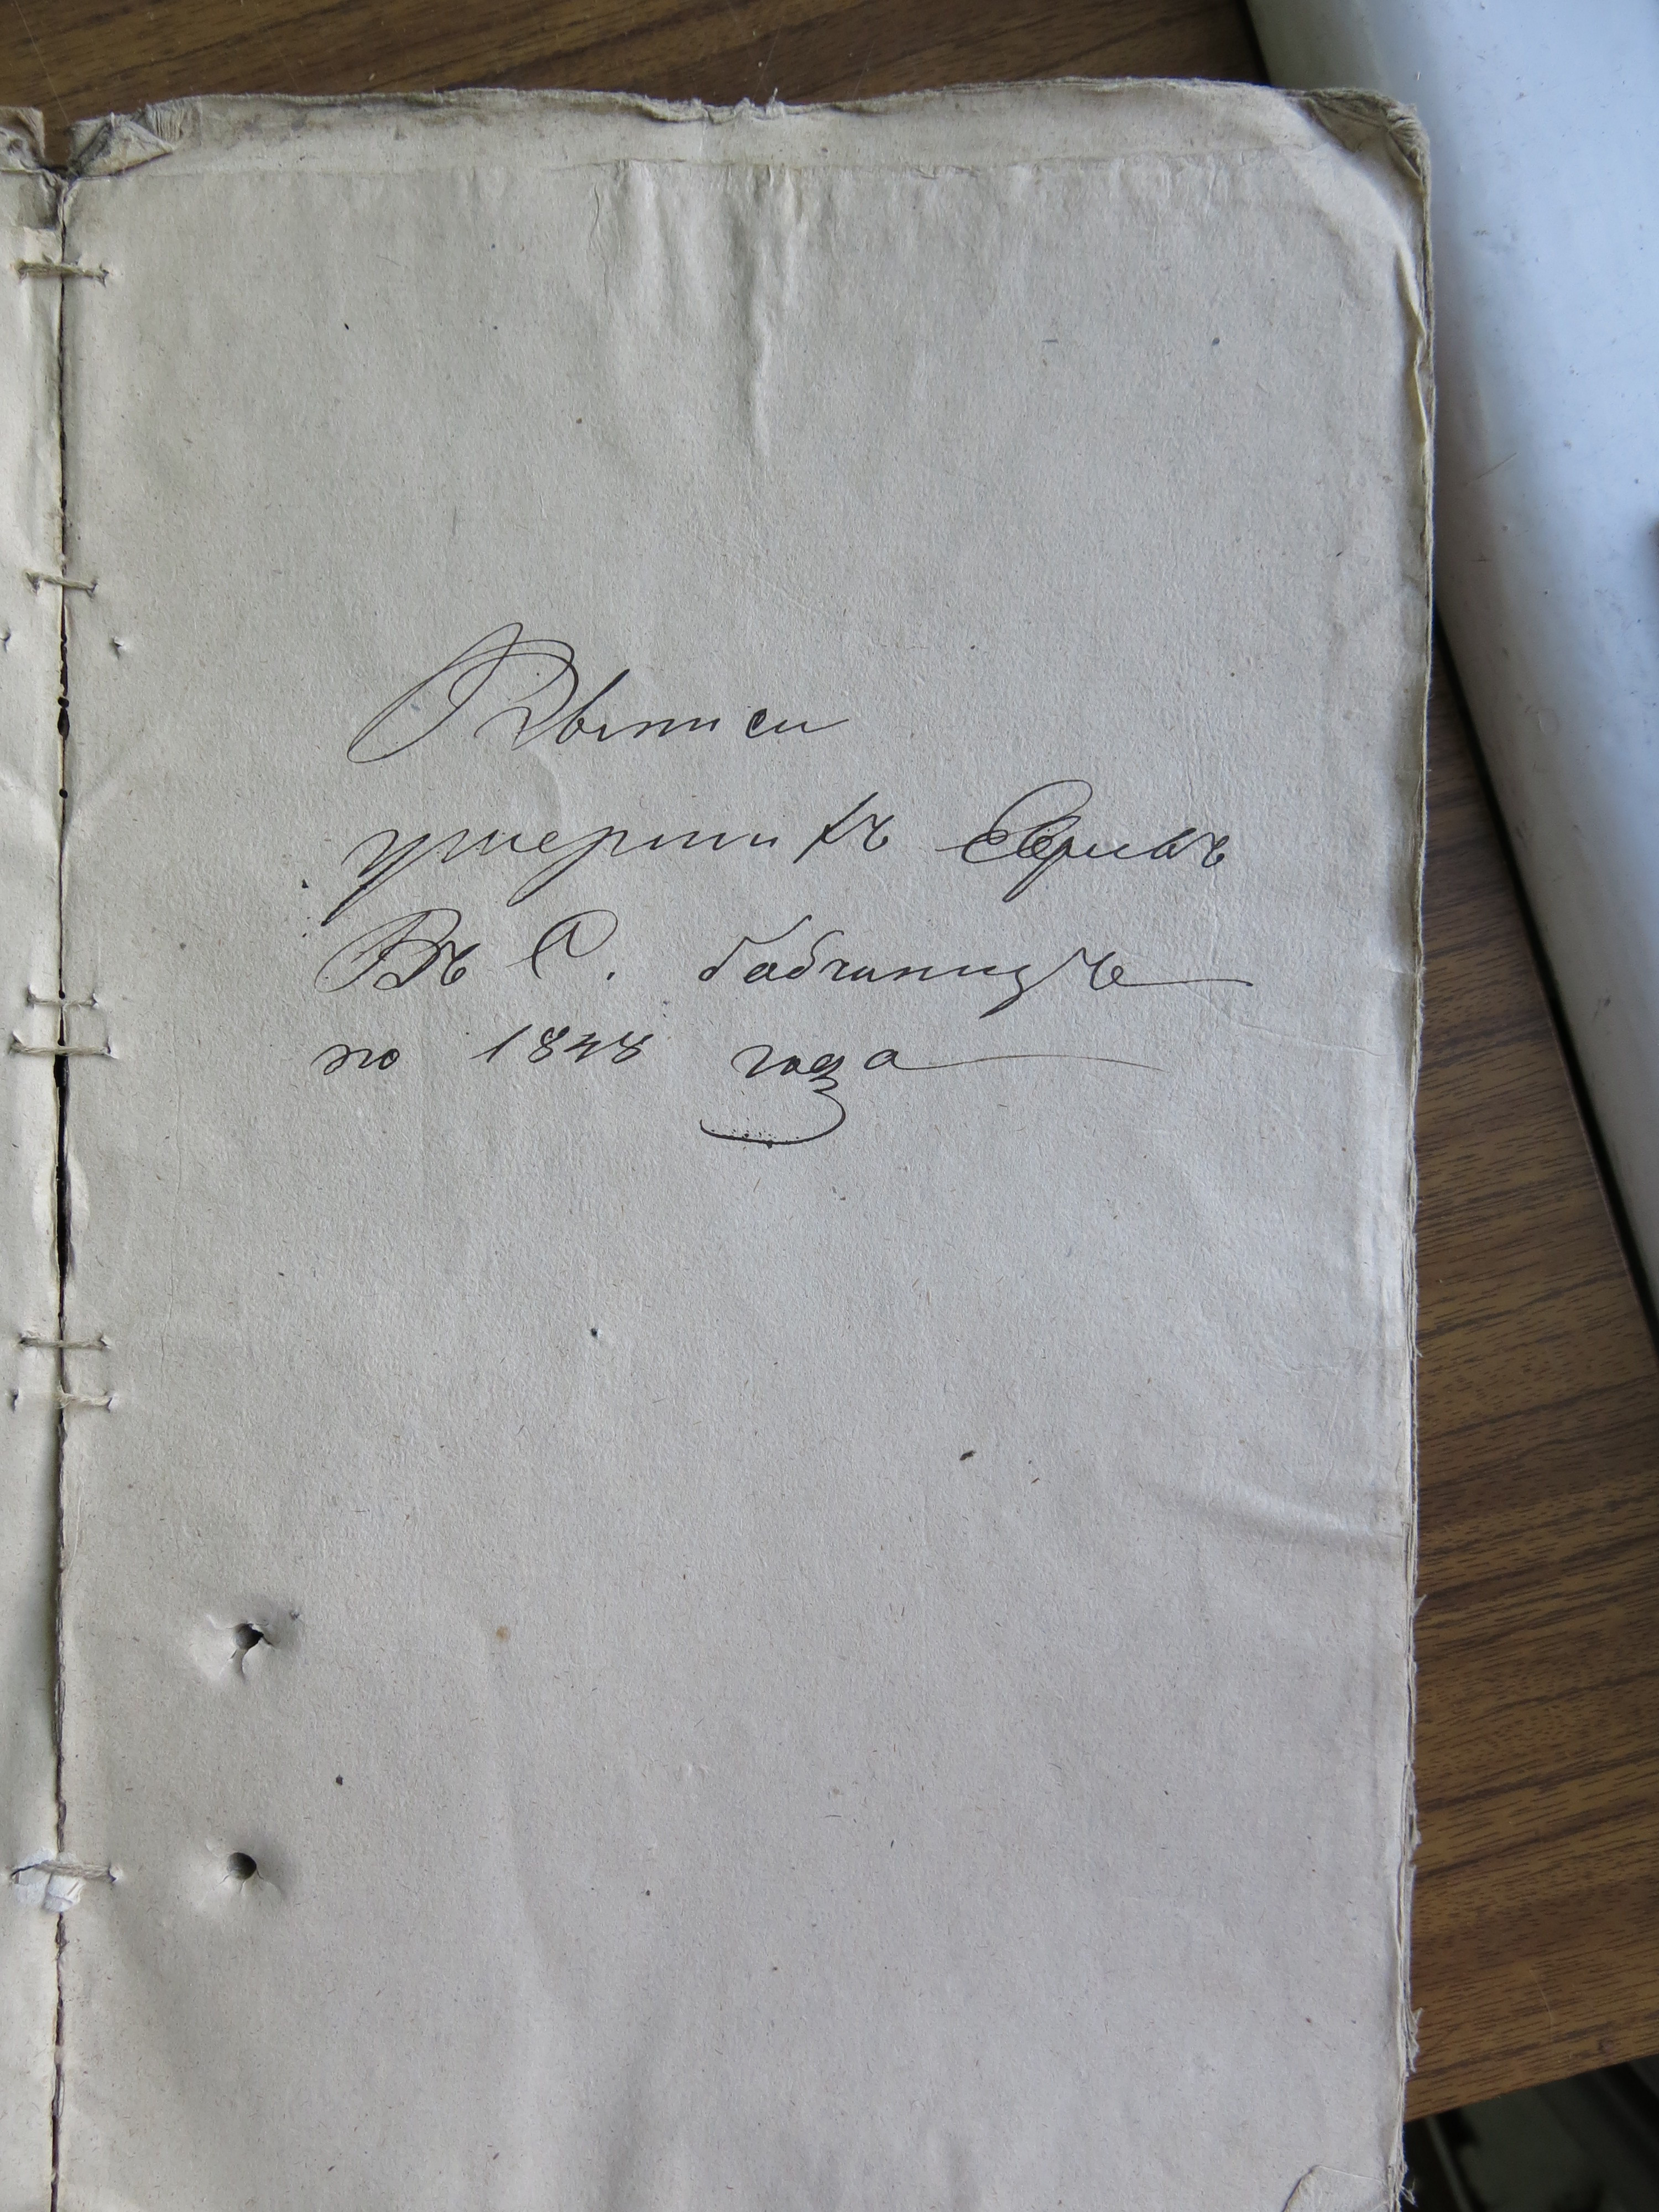 Записи
умершихъ Евреевъ
Въ С. бабчинцѣ
по 1848 года